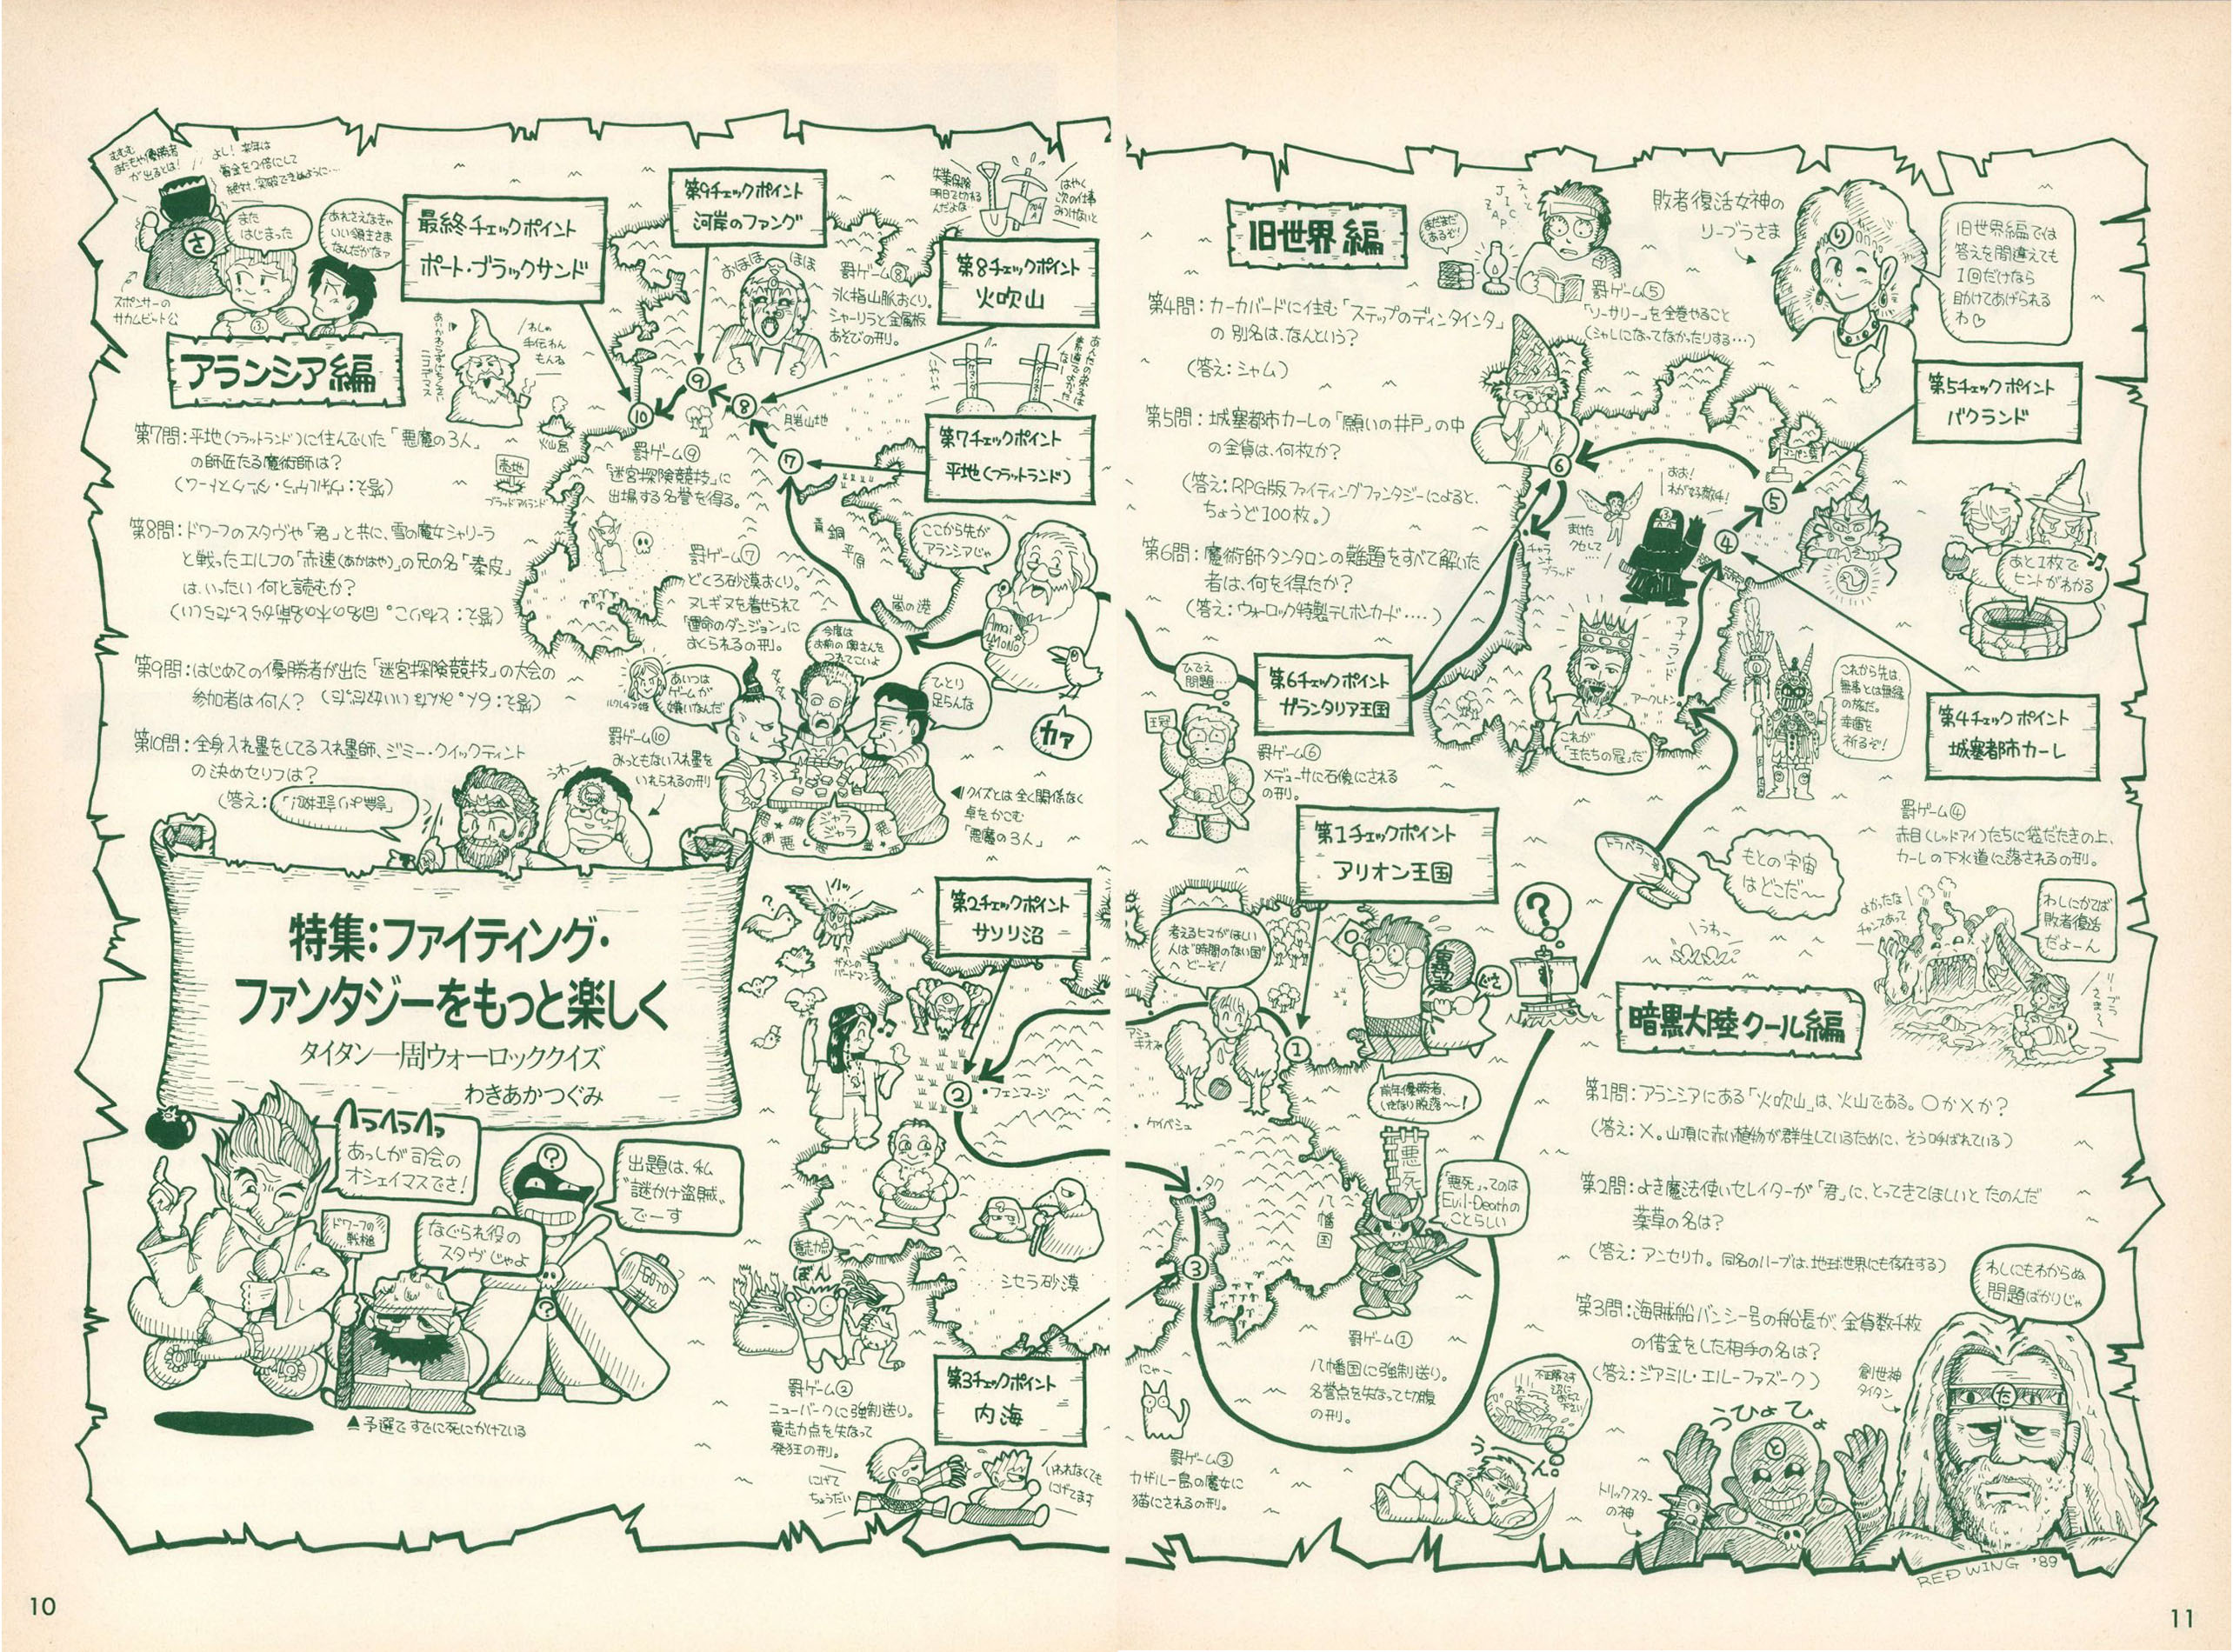 特集：ファイティング・
ファンタジーをもっと楽しく
タイタン一周ウォーロッククイズ
わきあかつぐみ
へらへらへっ
あっしが司会の
オシェイマスでさ！
出題は、私
“謎かけ盗賊”
でーす
ドワーフの
戦槌
なぐられ役の
スタヴじゃよ
▲予選ですでに死にかけている
アランシア編
むむむ
またもや優勝者
が出るとは！
よし！来年は
賞金を2倍にして
絶対、突破できぬように…
また
はじまった
あれさえなきゃ
いい領主さま
なんだがなァ
スポンサーの
サカムビット公
第7問：平地（フラットランド）に住んでいた「悪魔の3人」
の師匠たる魔術師は？
（答え：ヴォルゲラ・ダークストーム）
第8問：ドワーフのスタヴや「君」と共に、雪の魔女シャリーラ
と戦ったエルフの「赤速（あかはや）」の兄の名「秦皮」
は、いったい何と読むか？
第9問：はじめての優勝者が出た「迷宮探険競技」の大会の
参加者は何人？
第10問：全身入れ墨をしてる入れ墨師、ジミー・クイックティント
の決めセリフは？
（答え：
うわー
最終チェックポイント
ポート・ブラックサンド
第9チェックポイント
河岸のファング
第8チェックポイント
火吹山
第7チェックポイント
平地（フラットランド）
失業保険
明日で切れる
んだよな…
はやく
次の仕事
みつけないと
おほほ
ほほ
罰ゲーム⑧
氷指山脈おくり。
シャーリラと金属板
あそびの刑。
わしゃ
手伝わん
もんね
火山島
売地
ブラッドアイランド
月岩山地
罰ゲーム⑨
「迷宮探険競技」に
出場する名誉を得る。
青銅
平原
ここから先が
アランシアじゃ
嵐の港
罰ゲーム⑦
どくろ砂漠おくり。
ヌレギヌを着せられて
「運命のダンジョン」に
おくられるの刑。
Amai
MONO
カァ
今度は
お前の奥さんを
つれてこいよ
あいつは
ゲームが
嫌いなんだ
ひとり
足らんな
罰ゲーム⑩
みっともない入れ墨を
いれられるの刑
ジャラ
ジャラ
◀クイズとは全く関係なく
卓をかこむ
「悪魔の3人」
第2チェックポイント
サソリ沼
②
・フェンマージ
シセラ砂漠
意志力点
ぽん
罰ゲーム②
ニューバークに強制送り。
意志力点を失なって
発狂の刑。
第3チェックポイント
内海
にげて
ちょうだい
いわれなくても
にげてます
10
旧世界編
まだまだ
あるぞ！
罰ゲーム⑤
「ソーサリー」を全巻やること
（シャレになってなかったりする…）
敗者復活女神の
リーブラさま
旧世界編では
答えを間違えても
1回だけなら
助けてあげられる
わ♡
第4問：カーカバードに住む「ステップのディンタインタ」
の別名は、なんという？
（答え：シャム）
第5問：城塞都市カーレの「願いの井戸」の中
の金貨は、何枚か？
（答え：RPG版ファイティングファンタジーによると、
ちょうど100枚。）
第6問：魔術師タンタロンの難題をすべて解いた
者は、何を得たか？
（答え：ウォーロック特製テレホンカード‥‥）
第5チェックポイント
バクランド
おお！
わが好敵手！
まけた
クセして…
あと1枚で
ヒントがわかる
アナランド
アークレトン
これが
「王たちの冠」だ
これから先は、
無事とは無縁
の旅だ。
幸運を
祈るぞ！
第4チェックポイント
城塞都市カーレ
第6チェックポイント
ガランタリア王国
ひでえ
問題…
王冠
罰ゲーム⑥
メデューサに石像にされる
の刑。
罰ゲーム④
赤目（レッドアイ）たちに袋だたきの上、
カーレの下水道に落されるの刑。
よかったな
チャンスあって
わしにかてば
敗者復活
だよーん
リーブラ
さま〜
トラベラー号
もとの宇宙
はどこだ〜
うわ〜
第1チェックポイント
アリオン王国
考えるヒマがほしい
人は“時間のない国”
へどーぞ！
①
前年優勝者、
いきなり脱落〜！
・ケイペシュ
暗黒大陸クール編
第1問：アランシアにある「火吹山」は、火山である。〇か×か？
（答え：×。山頂に赤い植物が群生しているために、そう呼ばれている）
第2問：よき魔法使いセレイターが「君」に、とってきてほしいとたのんだ
薬草の名は？
（答え：アンセリカ。同名のハーブは、地球世界にも存在する）
第3問：海賊船バンシー号の船長が、金貨数千枚
の借金をした相手の名は？
（答え：ジアミル・エル＝ファズーク）
・タク
③
八幡国
悪死
「悪死」ってのは
Evil-Deathの
ことらしい
罰ゲーム①
八幡国に強制送り。
名誉点を失なって切腹
の刑。
にゃー
罰ゲーム③
カザルー島の魔女に
猫にされるの刑。
うーん
わしにもわからぬ
問題ばかりじゃ
創世神
タイタン
うひょひょ
トリックスター
の神
RED WING '89
11